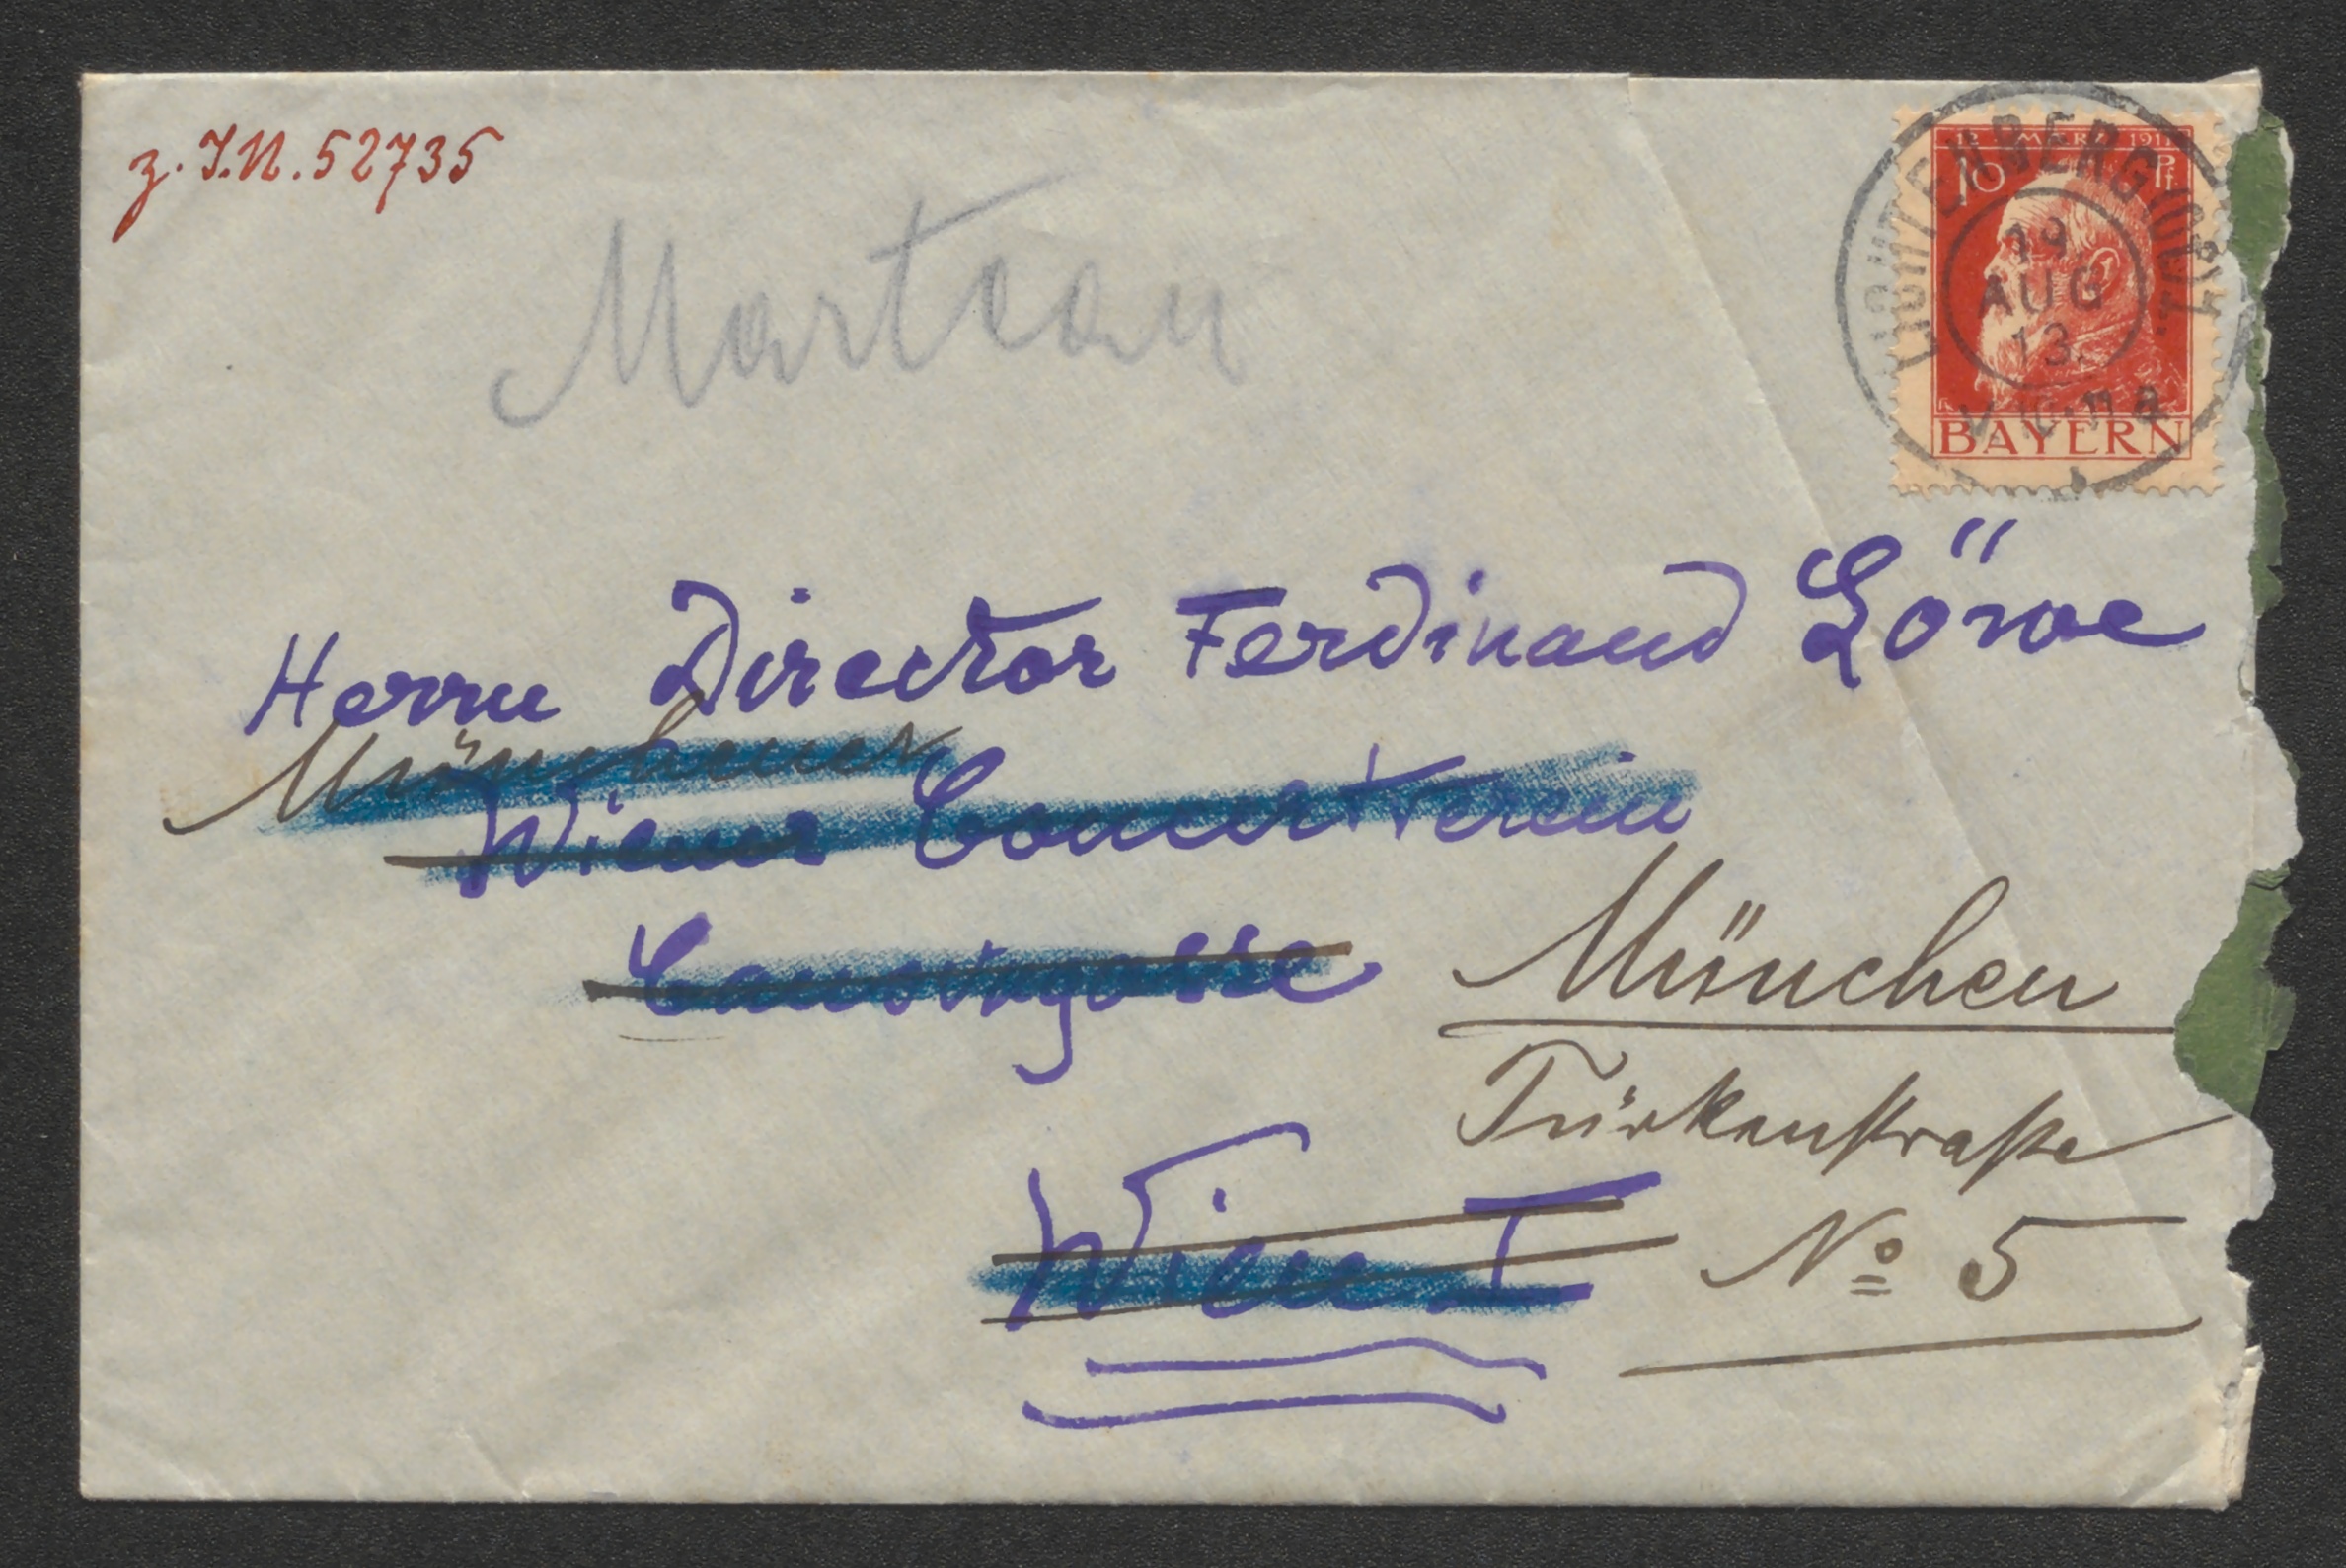 z. I.N. 52735
Marteau
1911
10 Pf
BAYERN
LICHTENBERG
19
AUG
13.
Herrn Director Ferdinand Löwe
Münchener
Wiener Concertverein
Canovagasse
München
Türkenstraße
Wien I
No 5